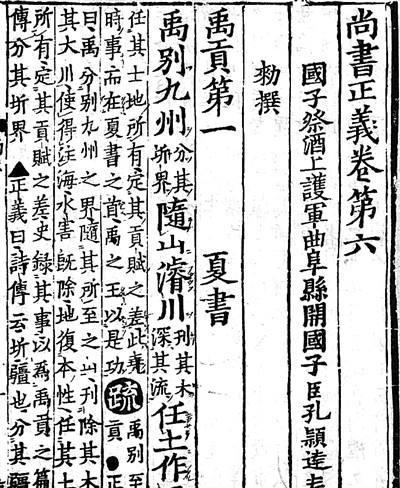 尚書正義卷第六
國子祭酒上護軍曲阜縣開國子臣孔穎達
勑撰
禹貢第一 夏書
禹別九州 分其圻界 隨山濬川 刊其木深其流 任土作
任其土地所有定其貢賦之差此堯
時事而在夏書之首禹之王以是功 疏 禹別至貢●正
曰禹分別九州之界隨其所至之山刊除其木
其大川使得注海水害旣除地復本性任其土
所有定其貢賦之差史錄其事以爲禹貢之篇
傳分其圻界▲正義曰詩傳云圻疆也分其疆